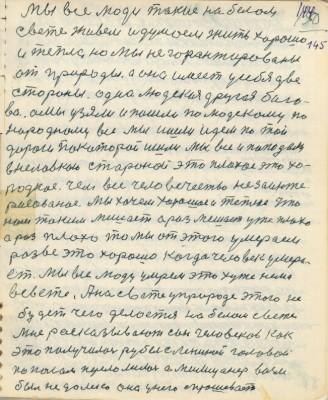 144
145
Мы все люди такие на белом
свете живем и думаем жить хорошо
и тепло, но мы не горантированы
от природы, а она имеет у себя две
стороны. одна людская другая
мы узяли и пошли по людскому по
народному все мы ишли идем по той
дороги по которой ишли мы все и попадали
в стороной это плохое это хо-
лодное. чем все человечество не заинте
рисованое мы хочем хорошее и теплое это
нам таким мишает а раз мешает уже плохо
а раз плохо то мы от этого умераем
разве это хорошо когда человек умера-
ет. Мы все люди умрем это хуже нема
в свете, А на свете у природе этого не
будет чего делается на белом свете
мне рассказывают сын человеков как
это получилось рубль с лениной головой
по полам а милицанер возле
был не далеко она у него спрашивает